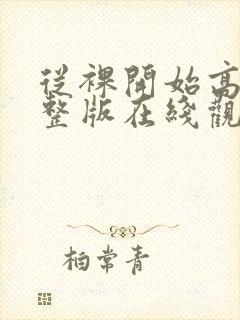 從裸開始高
整版在綫觀
柏常青